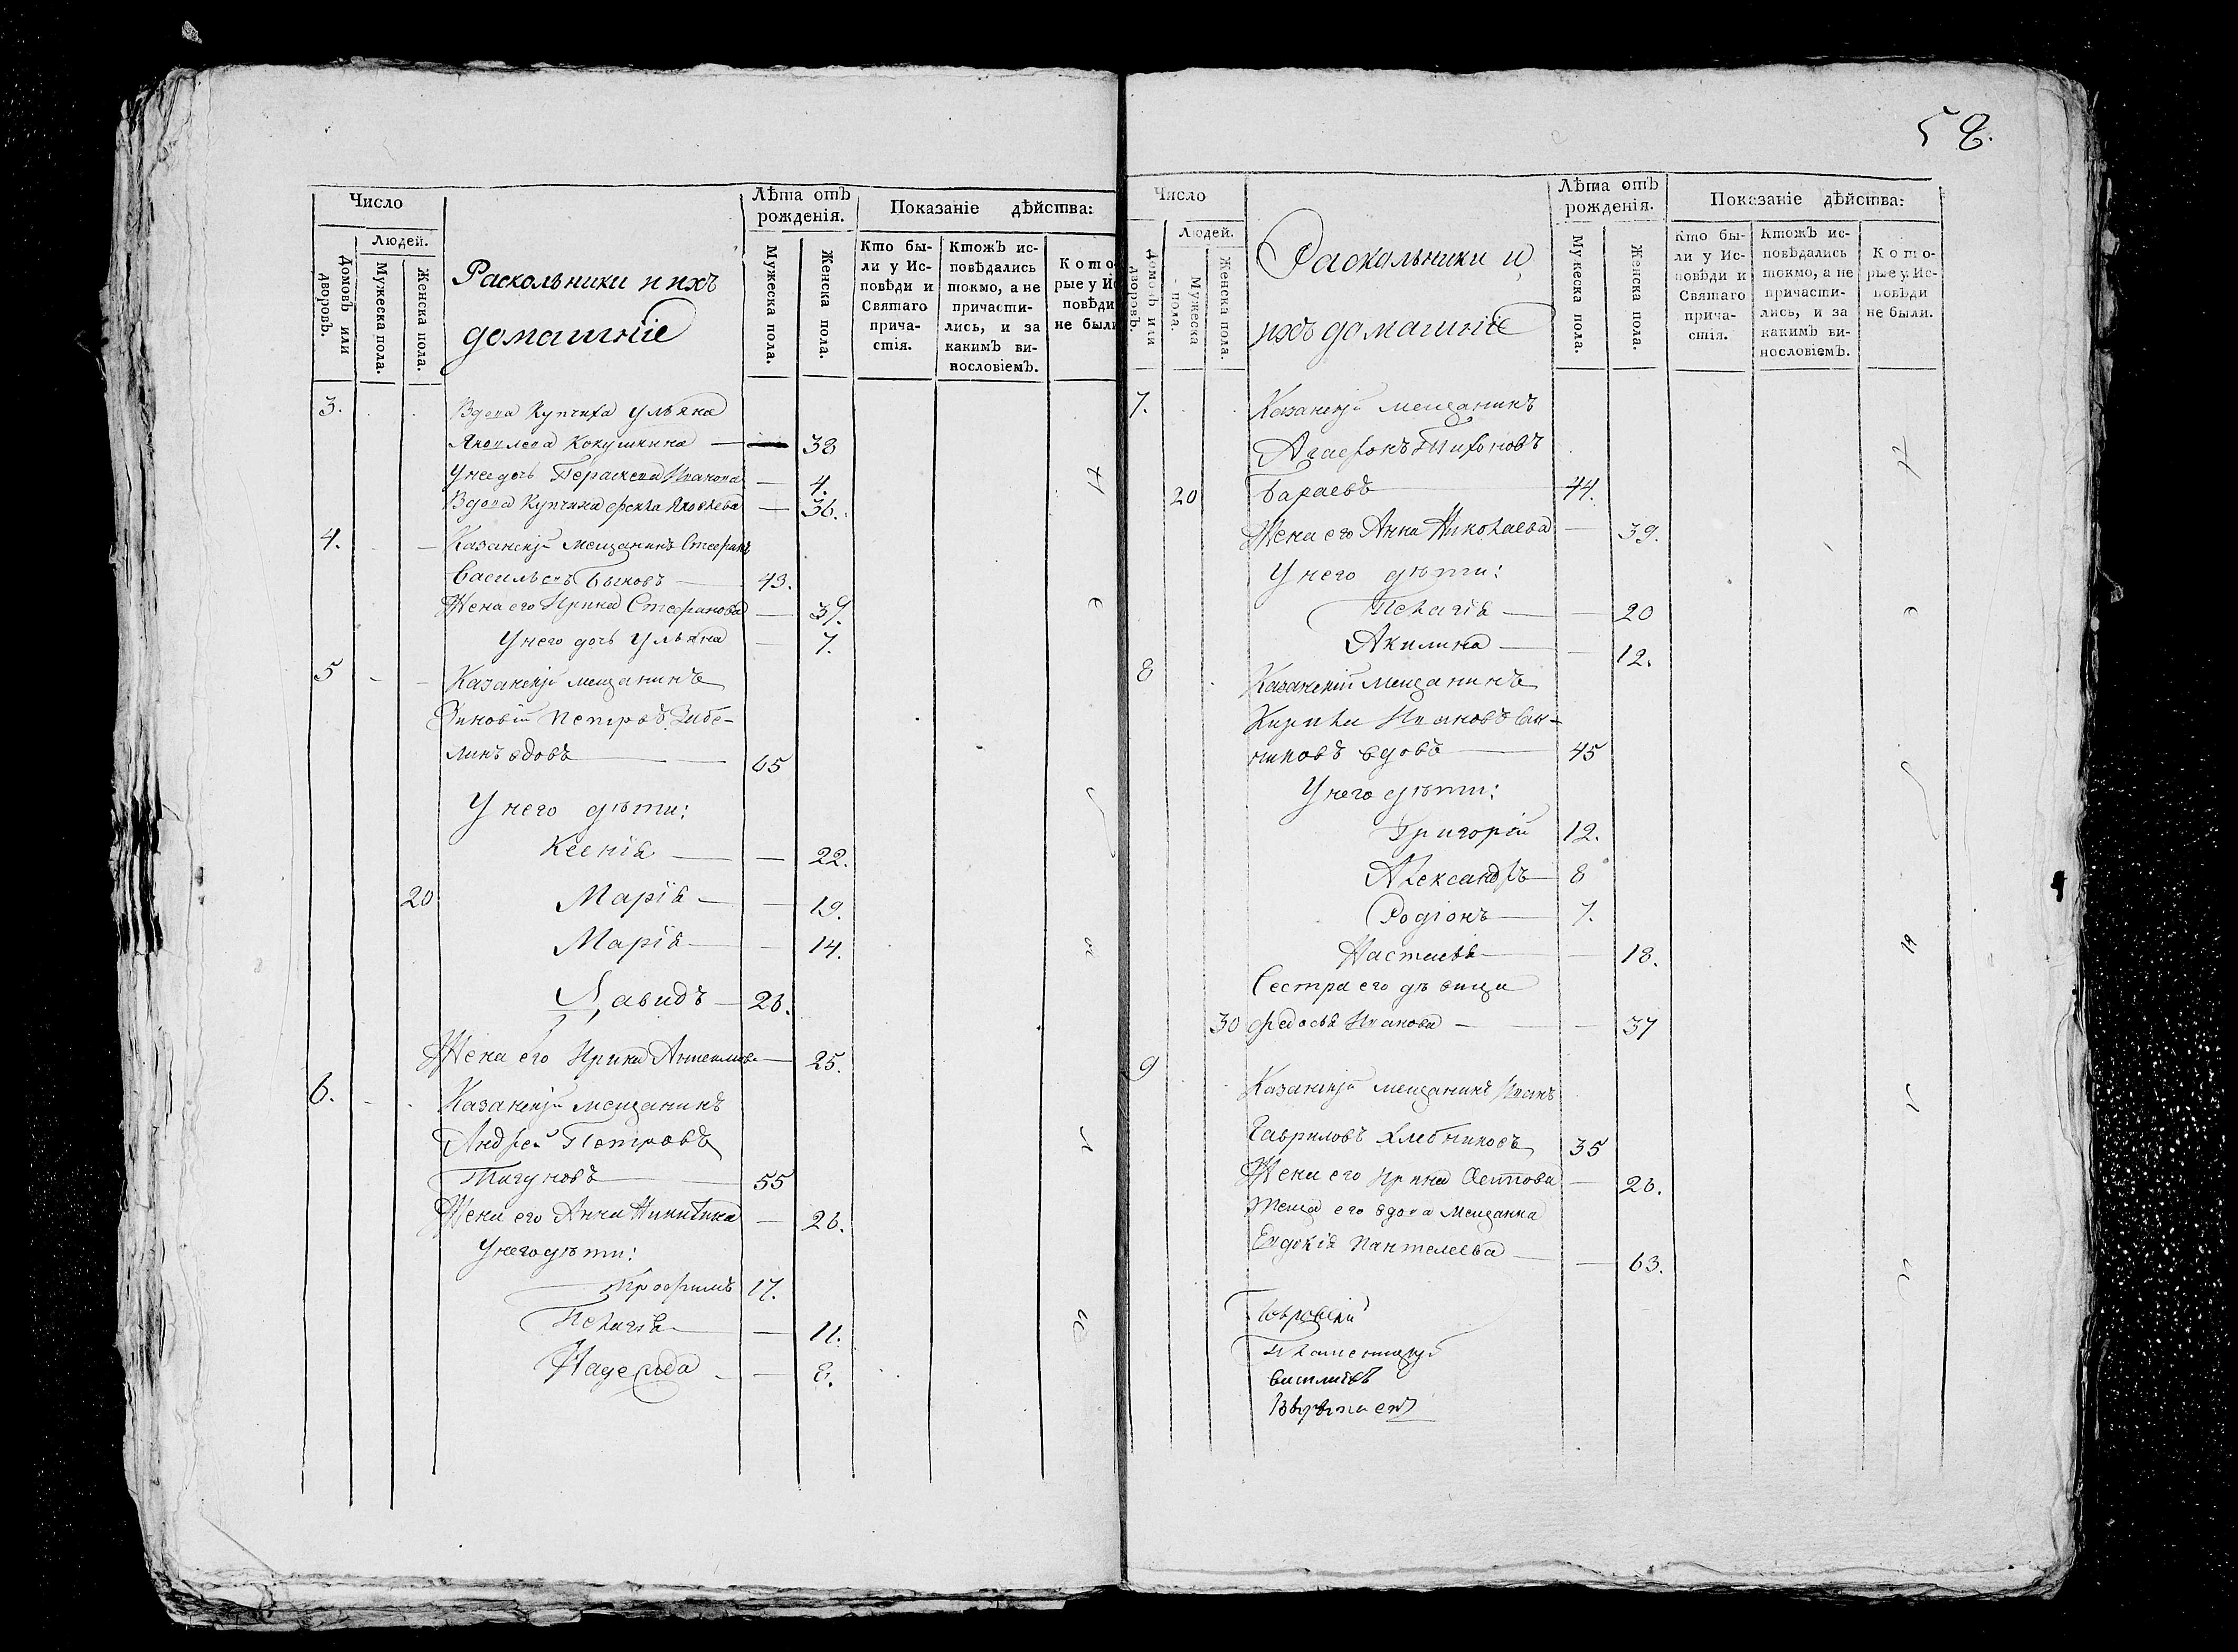 58.
Число
Людей.
Домовъ или дворовъ.
Мужеска пола.
Женска пола.
Раскольники и ихъ
домашніе
Лѣта отъ
рожденія.
Мужеска пола.
Женска пола.
Показаніе дѣйства:
Кто бы-
ли у Ис-
повѣди и
Святаго
прича-
стія.
Ктожъ ис-
повѣдались
токмо, а не
причасти-
лись, и за
какимъ ви-
нословіемъ.
Кото
рые у Ис
повѣди
не были
3. Вдова Купчиха Ульяна
Яковлева Кокушкина — 38
У нее дочь Параскева Иванова — 4.
Вдова Купчиха Фекла Яковлева — 36.
4. Казанскій мещанинъ Стефанъ
Васильевъ Быковъ — 43.
Жена его Ирина Стефанова — 39.
У него дочь Ульяна — 7.
5 Казанскій мещанинъ
Зиновій Петровъ Зибе-
линъ вдовъ — 65
У него дѣти:
Ксенія — 22.
20 Марія — 19.
Марія — 14.
Давидъ — 26.
Жена его Ирина — 25.
6. Казанскій мещанинъ
Андрей Петровъ
Тигуновъ — 55
Жена его Анна Никитина — 26.
У него дѣти:
Трофимъ 17.
Пелагія — 11.
Надежда — 8.
Число
Людей.
Домовъ или дворовъ.
Мужеска пола.
Женска пола.
Раскольники и
ихъ домашніе
Лѣта отъ
рожденія.
Мужеска пола.
Женска пола.
Показаніе дѣйства:
Кто бы-
ли у Ис-
повѣди и
Святаго
прича-
стія.
Ктожъ ис-
повѣдались
токмо, а не
причасти-
лись, и за
какимъ ви-
нословіемъ.
Кото-
рые у Ис-
повѣди
не были.
7. Казанскій мещанинъ
Агафонъ Тихоновъ
20 Бараевъ 44.
Жена его Анна Николаева — 39.
У него дѣти:
Пелагія — 20
Акилина — 12.
8 Казанскій мещанинъ
Кирила Ивановъ Сан-
никовъ вдовъ — 45
У него дѣти:
Григорій 12.
Александръ — 8
Родіонъ — 7.
Настасья — 18.
Сестра его дѣвица
30 Федосья Иванова — 37
9 Казанскій мещанинъ Иванъ
Гавриловъ Хлебниковъ 35
Жена его Ирина Осипова — 26.
Теща его вдова Мещанка
Евдокія Пантелеева — 63.